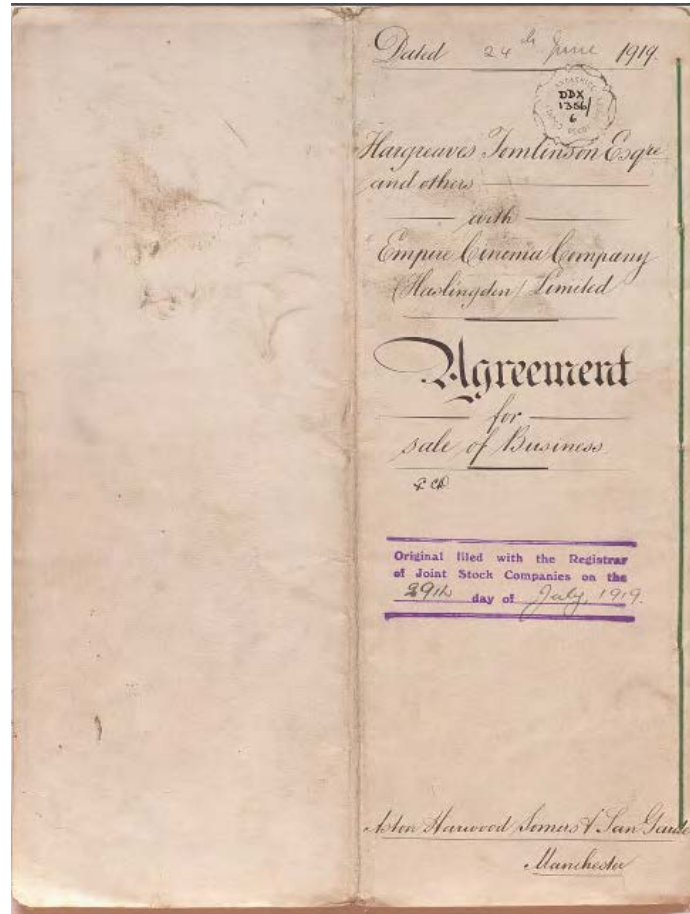 Dated 24th June 1919.
DDX
1356/
6
Hargreaves Tomlinson Esqre
and others
with
Empire Cinema Company
(Haslingden) Limited
Agreement
for
sale of Business
Original filed with the Registrar
of Joint Stock Companies on the
29th day of July, 1919.
Aston Harwood Somers &
Manchester